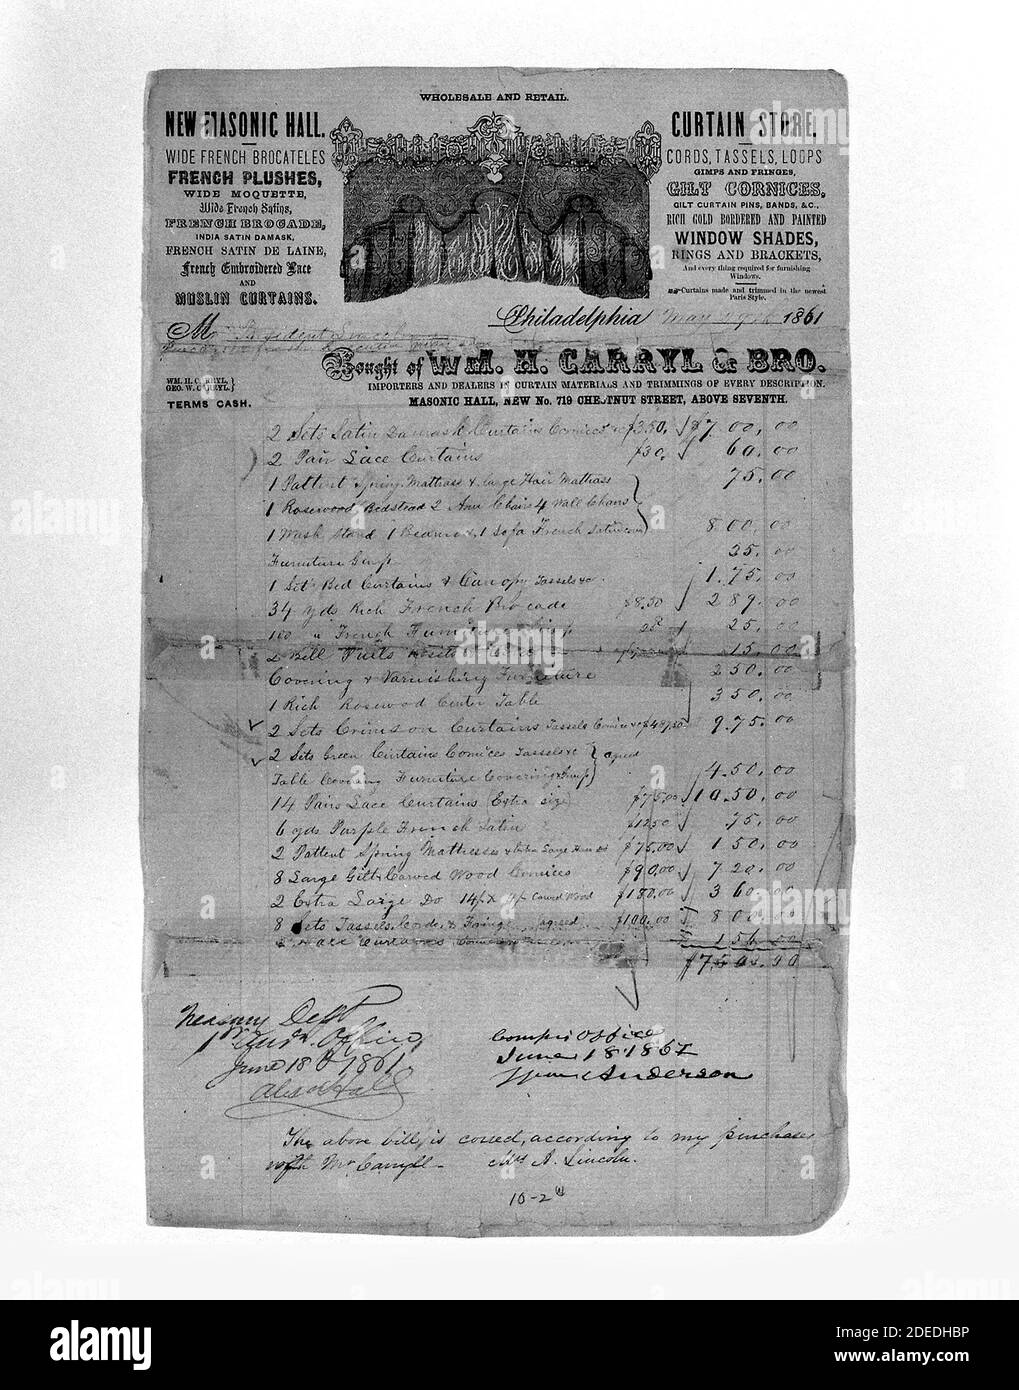 WHOLESALE AND RETAIL.
NEW MASONIC HALL.
WIDE FRENCH BROCATELES
FRENCH PLUSHES,
WIDE MOQUETTE,
Wide French Satins,
FRENCH BROCADE,
INDIA SATIN DAMASK,
FRENCH SATIN DE LAINE,
French Embroidered Lace
AND
MUSLIN CURTAINS.
CURTAIN STORE,
CORDS, TASSELS, LOOPS
GIMPS AND FRINGES,
GILT CORNICES,
GILT CURTAIN PINS, BANDS, &C.,
RICH GOLD BORDERED AND PAINTED
WINDOW SHADES,
RINGS AND BRACKETS,
And every thing required for furnishing
Windows.
Curtains made and trimmed in the newest
Paris Style.
Philadelphia May 1861
M President
Bought of WM. H. CARRYL & BRO.
WM. H. CARRYL,
GEO. W. CARRYL.
IMPORTERS AND DEALERS IN CURTAIN MATERIALS AND TRIMMINGS OF EVERY DESCRIPTION.
TERMS CASH.
MASONIC HALL, NEW No. 719 CHESTNUT STREET, ABOVE SEVENTH.
2 Sets Satin Damask Curtains Cornices &c $350, $7.00,.00
2 Pair Lace Curtains $30, 60.00
1 Pattent Spring Mattrass & large Hair Mattrass 75.00
1 Rosewood Bedstead 2 Arm Chairs 4 Wall Chairs
1 Wash Stand 1 Beaureau, 1 Sofa French Satin 800.00
Furniture Gimp 25.00
1 Set Bed Curtains & Canopy Tassels &c. 1.75.00
34 yds Rich French Brocade $8.50 289.00
100 " French Furniture Gimp 25 25.00
2 15.00
Covering & Varnishing Furniture 250.00
1 Rich Rosewood Center Table 350.00
2 Sets Crimson Curtains Tassels Cornices &c $487.50 9.75.00
2 Sets Green Curtains Cornices Tassels &c agreed
Table Covering Furniture Covering & Gimp 4.50.00
14 Pairs Lace Curtains (Extra size) $75.00 10.50.00
6 yds Purple French Satin $12.50 75.00
2 Pattent Spring Mattresses & Extra Large Hair do $75.00 150.00
8 Large Gilt & Carved Wood Cornices $90.00 720.00
2 Extra Large Do Carved Wood $180.00 360.00
8 Sets Tassels, Cords, & Fringe, (agreed $100.00 800.00
Lace Curtains 156.00
$7500.00
Treasury Dept
1st Aud. Office,
June 18th 1861
Comps Office
June 18 1861
Anderson
The above bill, is correct, according to my purchases
with Mr Carryll - Mrs A. Lincoln.
10-2
alamy
Image ID: 2DEDHBP
www.alamy.com